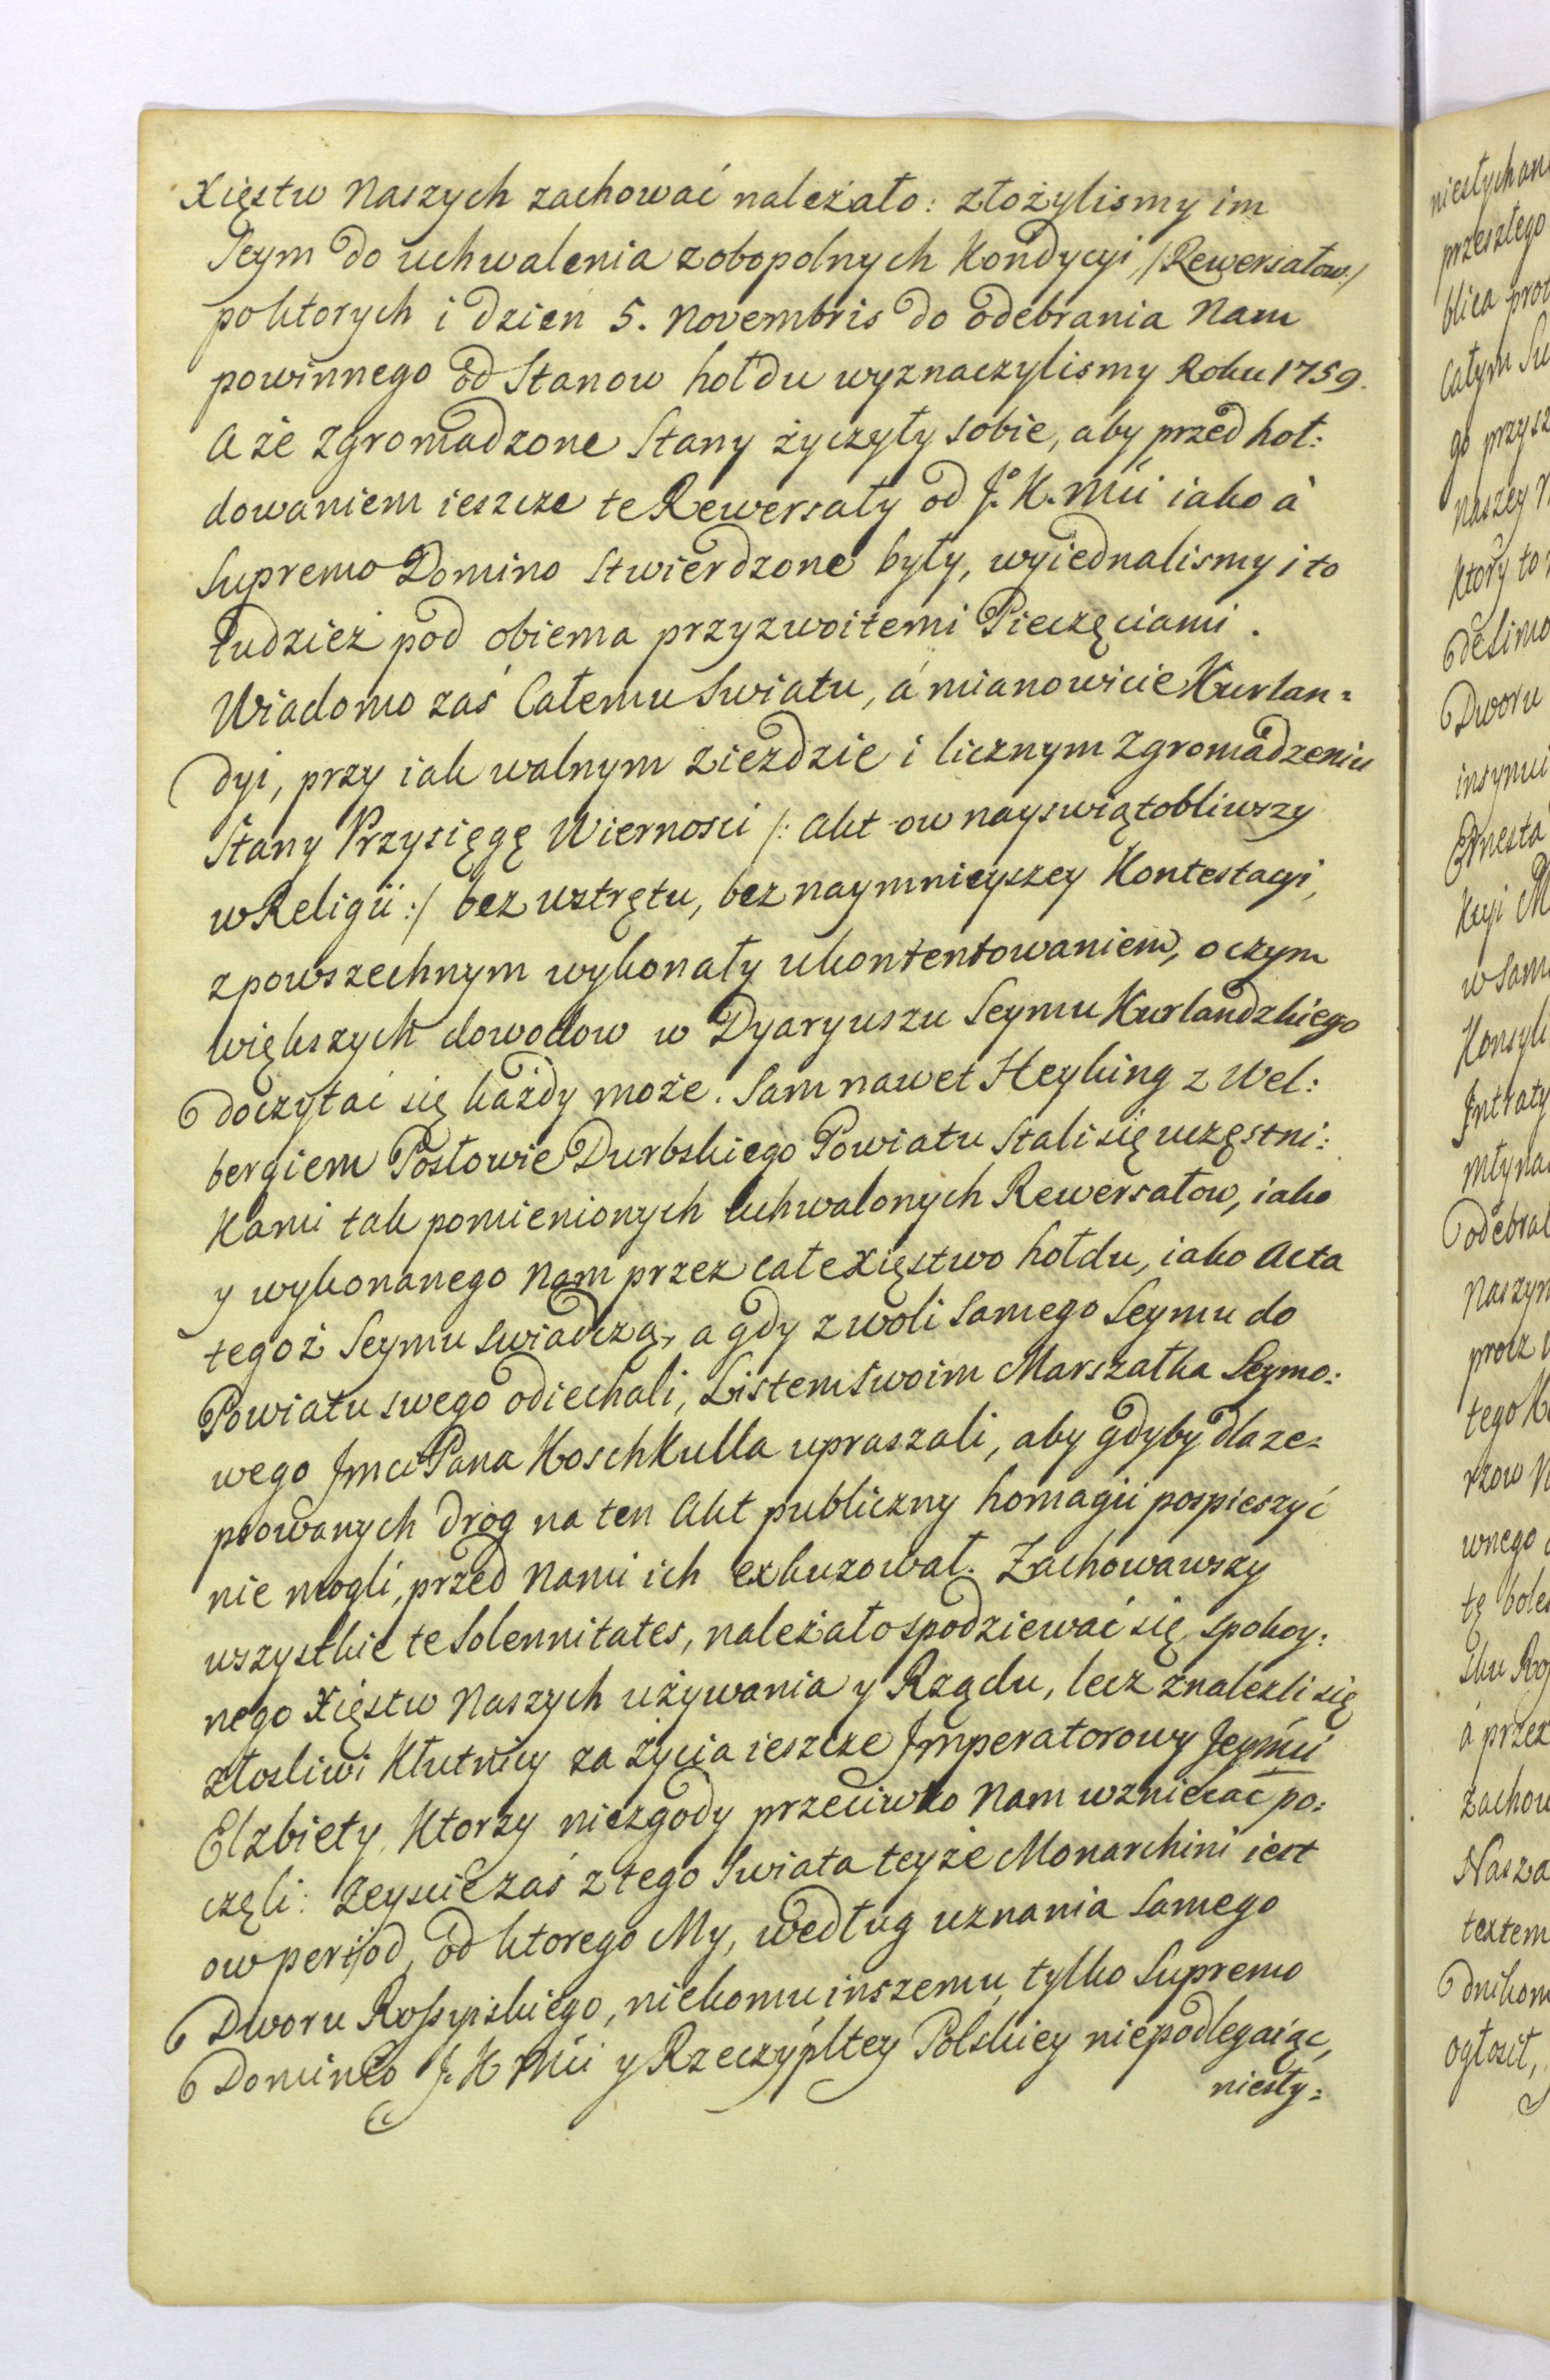 Xięstw Naszych zachować należało: złożylismy im
Seym do uchwalenia zobopolnych Kondycyi /Rewersałow/
po ktorych i dzień 5. Novembris do odebrania Nam
powinnego od Stanow hołdu wyznaczylismy Roku 1759.
A że zgromadzone Stany życzyły sobie, aby przed hoł:
dowaniem ieszcze te Rewersały od J. K. Mci iako à
Supremo Domino stwierdzone były, wyiednalismy i to
tudzież pod obiema przyzwoitemi Pieczęciami.
Wiadomo zaś Całemu Swiatu, á mianowicie Kurlan=
dyi, przy iak walnym zieździe i licznym zgromadzeniu
Stany Przysięgę Wiernosci /: Akt ow nayswiątobliwszy
w Religii :/ bez wstrętu, bez naymnieyszey Kontestacyi,
z powszechnym wykonały ukontentowaniem, o czym
większych dowodow w Dyaryuszu Seymu Kurlandzkiego
doczytać się każdy może. Sam nawet Heyking z Wel:
bergiem Posłowie Durbskiego Powiatu stali się uczęstni:
kami tak pomienionych uchwalonych Rewersałow, iako
y wykonanego Nam przez całe Xięstwo hołdu, iako Acta
tegoż Seymu swiadczą, a gdy z woli samego Seymu do
Powiatu swego odiechali, Listem swoim Marszałka Seymo:
wego Jmci Pana Koschkulla upraszali, aby gdyby dla ze=
psowanych drog na ten Akt publiczny homagii pospieszyć
nie mogli, przed Nami ich exkuzował. Zachowawszy
wszystkie te Solennitates, należało spodziewać się spokoy:
nego Xięstw Naszych używania y Rządu, lecz znalezli się
złosliwi Kłutnicy za życia ieszcze Jmperatorowy Jeymci
Elzbiety, Ktorzy niezgody przeciwko Nam wzniecać po:
częli: Zeyscie zaś z tego Swiata teyże Monarchini iest
ow period, od ktorego My, według uznania samego
Dworu Rossyiskiego, niekomu inszemu, tylko Supremo
Domino J. K Mci y Rzeczypltey Polskiey niepodlegaiąc,
niesły=
niesłychan
przeszłego
blica prot
Całym Su
go przysz
naszey
Ktory to
Dworu
insynui
Ernesta
w Sam
Konsyl
Jntraty
młyna
odebral
Naszym
procz
tego
rzow
wnego
tę boles
á przez
zachow
Nasza
textem
ogłosił,